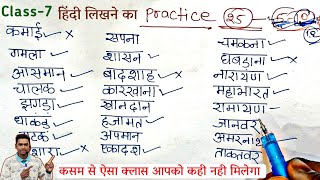 Class-7 हिंदी लिखने का practice 25
कमाई
गमला
आसमान
चालक
झगड़ा
धाकड़
शारा
सपना
शासन
बादशाह
कारखाना
खानदान
हजामत
अपमान
एकादश
चमकना
घबड़ाना
नारायण
महाभारत
रामायण
जानवर
अमरनाथ
ताकतवर
कसम से ऐसा क्लास आपको कही नही मिलेगा